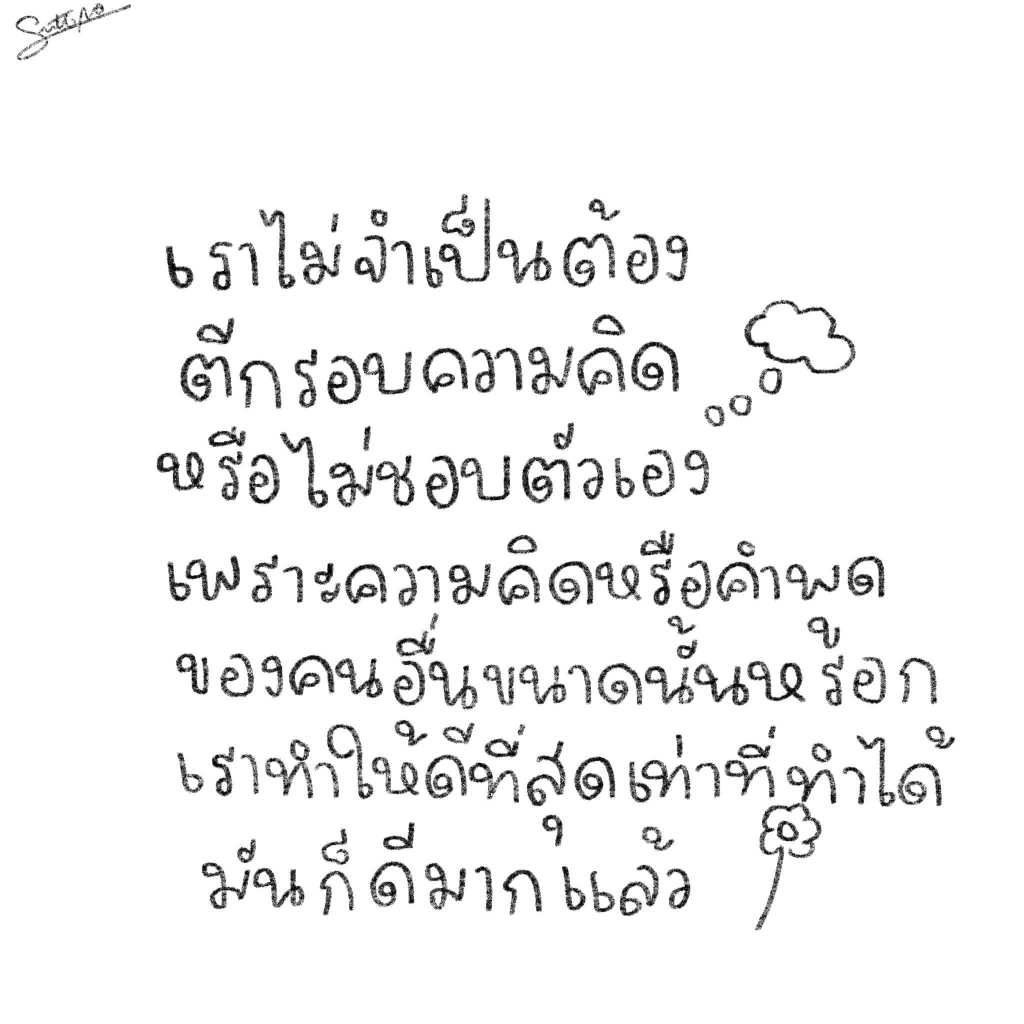 เราไม่จำเป็นต้อง
ตีกรอบความคิด
หรือไม่ชอบตัวเอง
เพราะความคิดหรือคำพด
ของคนอื่นขนาดนั้นหร้อก
เราทำให้ดีที่สุดเท่าที่ทำได้
มันก็ดีมากแล้ว